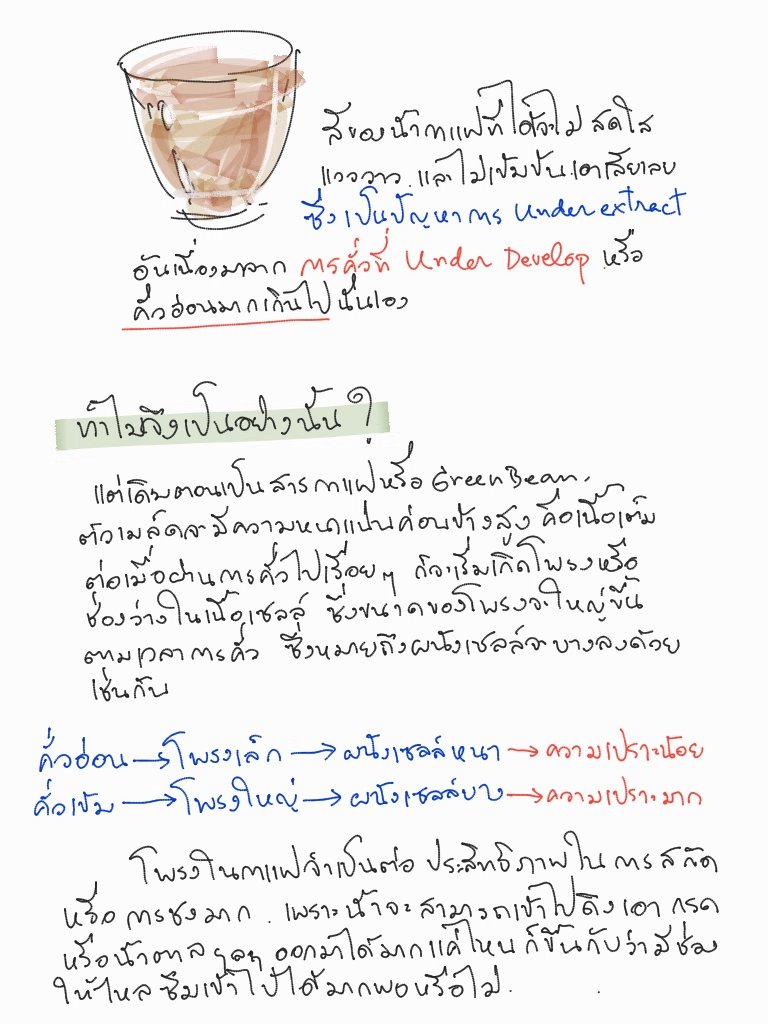 สีของน้ำกาแฟที่ได้จะไม่ สดใส
แวววาว และไม่เข้มข้นเอาเสียเลย
ซึ่งเป็นปัญหาการ Under extract
อันเนื่องมาจาก การคั่วที่ Under Develop หรือ
คั่วอ่อนมากเกินไป นั่นเอง
ทำไมจึงเป็นอย่างนั้น ?
แต่เดิมตอนเป็นสารกาแฟหรือ Green Bean.
ตัวเมล็ดจะมีความหนาแน่นค่อนข้างสูง คือเนื้อเต็ม
ต่อเมื่อผ่านการคั่วไปเรื่อยๆ ก็จะเริ่มเกิดโพรงหรือ
ช่องว่างในเนื้อเซลล์ ซึ่งขนาดของโพรงจะใหญ่ขึ้น
ตามเวลาการคั่ว ซึ่งหมายถึงผนังเซลล์จะบางลงด้วย
เช่นกัน
คั่วอ่อน → โพรงเล็ก → ผนังเซลล์หนา → ความเปราะน้อย
คั่วเข้ม → โพรงใหญ่ → ผนังเซลล์บาง → ความเปราะมาก
โพรงในกาแฟจำเป็นต่อ ประสิทธิภาพใน การสกัด
หรือ การชงมาก . เพราะน้ำจะ สามารถเข้าไปดึงเอา กรด
หรือน้ำตาล ๆลๆ ออกมาได้มากแค่ไหน ก็ขึ้นกับว่า มีช่อง
ให้ไหล ซึมเข้าไปได้มากพอหรือไม่ .